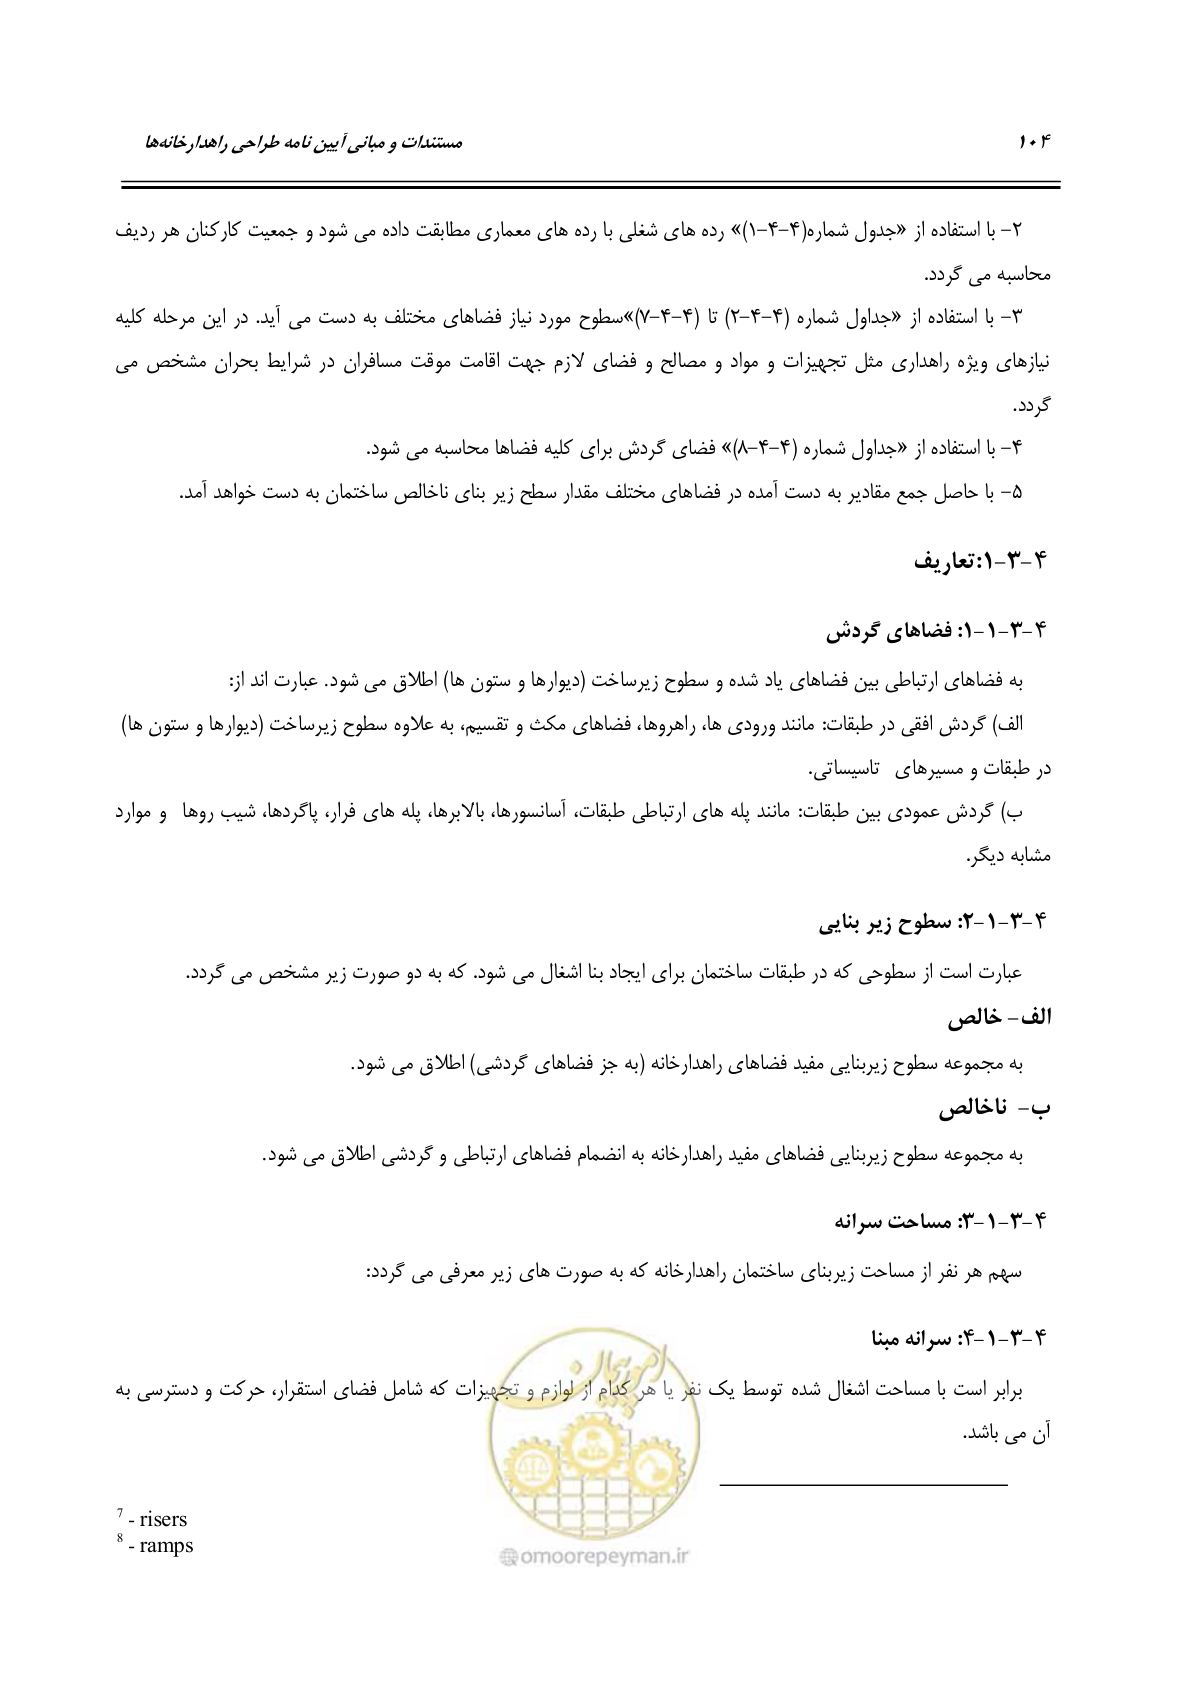 ۱۰۴ مستندات و مبانی آیین نامه طراحی راهدارخانه‌ها
۲- با استفاده از «جدول شماره(۴-۴-۱)» رده های شغلی با رده های معماری مطابقت داده می شود و جمعیت کارکنان هر ردیف
محاسبه می گردد.
۳- با استفاده از «جداول شماره (۴-۴-۲) تا (۴-۴-۷)»سطوح مورد نیاز فضاهای مختلف به دست می آید. در این مرحله کلیه
نیازهای ویژه راهداری مثل تجهیزات و مواد و مصالح و فضای لازم جهت اقامت موقت مسافران در شرایط بحران مشخص می
گردد.
۴- با استفاده از «جداول شماره (۴-۴-۸)» فضای گردش برای کلیه فضاها محاسبه می شود.
۵- با حاصل جمع مقادیر به دست آمده در فضاهای مختلف مقدار سطح زیر بنای ناخالص ساختمان به دست خواهد آمد.
۴-۳-۱:تعاریف
۴-۳-۱-۱: فضاهای گردش
به فضاهای ارتباطی بین فضاهای یاد شده و سطوح زیرساخت (دیوارها و ستون ها) اطلاق می شود. عبارت اند از:
الف) گردش افقی در طبقات: مانند ورودی ها، راهروها، فضاهای مکث و تقسیم، به علاوه سطوح زیرساخت (دیوارها و ستون ها)
در طبقات و مسیرهای تاسیساتی.
ب) گردش عمودی بین طبقات: مانند پله های ارتباطی طبقات، آسانسورها، بالابرها، پله های فرار، پاگردها، شیب روها و موارد
مشابه دیگر.
۴-۳-۱-۲: سطوح زیر بنایی
عبارت است از سطوحی که در طبقات ساختمان برای ایجاد بنا اشغال می شود. که به دو صورت زیر مشخص می گردد.
الف- خالص
به مجموعه سطوح زیربنایی مفید فضاهای راهدارخانه (به جز فضاهای گردشی) اطلاق می شود.
ب- ناخالص
به مجموعه سطوح زیربنایی فضاهای مفید راهدارخانه به انضمام فضاهای ارتباطی و گردشی اطلاق می شود.
۴-۳-۱-۳: مساحت سرانه
سهم هر نفر از مساحت زیربنای ساختمان راهدارخانه که به صورت های زیر معرفی می گردد:
۴-۳-۱-۴: سرانه مبنا
برابر است با مساحت اشغال شده توسط یک نفر یا هر کدام از لوازم و تجهیزات که شامل فضای استقرار، حرکت و دسترسی به
آن می باشد.
امور پیمان
7 - risers
8 - ramps
@omoorepeyman.ir